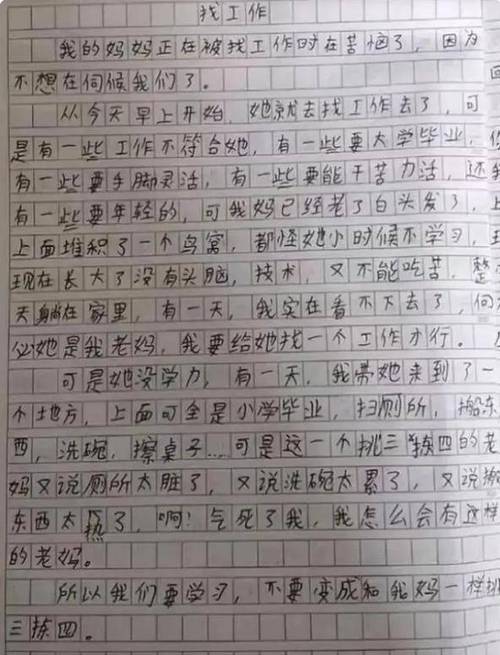 找工作
我的妈妈正在被找工作时在苦恼了，因为
不想在伺候我们了。
从今天早上开始，她就去找工作去了，可
是有一些工作不符合她，有一些要大学毕业，
有一些要手脚灵活，有一些要能干苦力活，还
有一些要年轻的，可我妈已经老了白头发了，上
上面堆积了一个鸟窝，都怪她小时候不学习，
现在长大了没有头脑，技术，又不能吃苦，整
天躺在家里，有一天，我实在看不下去了，何
必她是我老妈，我要给她找一个工作才行。
可是她没学力，有一天，我带她来到了一
个地方，上面可全是小学毕业，扫厕所，搬东
西，洗碗，擦桌子…可是这一个挑三拣四的老
妈又说厕所太脏了，又说洗碗太累了，又说搬
东西太热了，啊！气死了我，我怎么会有这样
的老妈。
所以我们要学习，不要变成和我妈一样挑
三拣四。